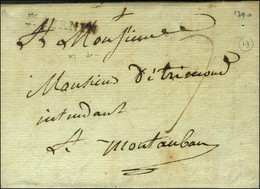 A Monsieur
Monsieur D'étrimond
intendant
A montauban